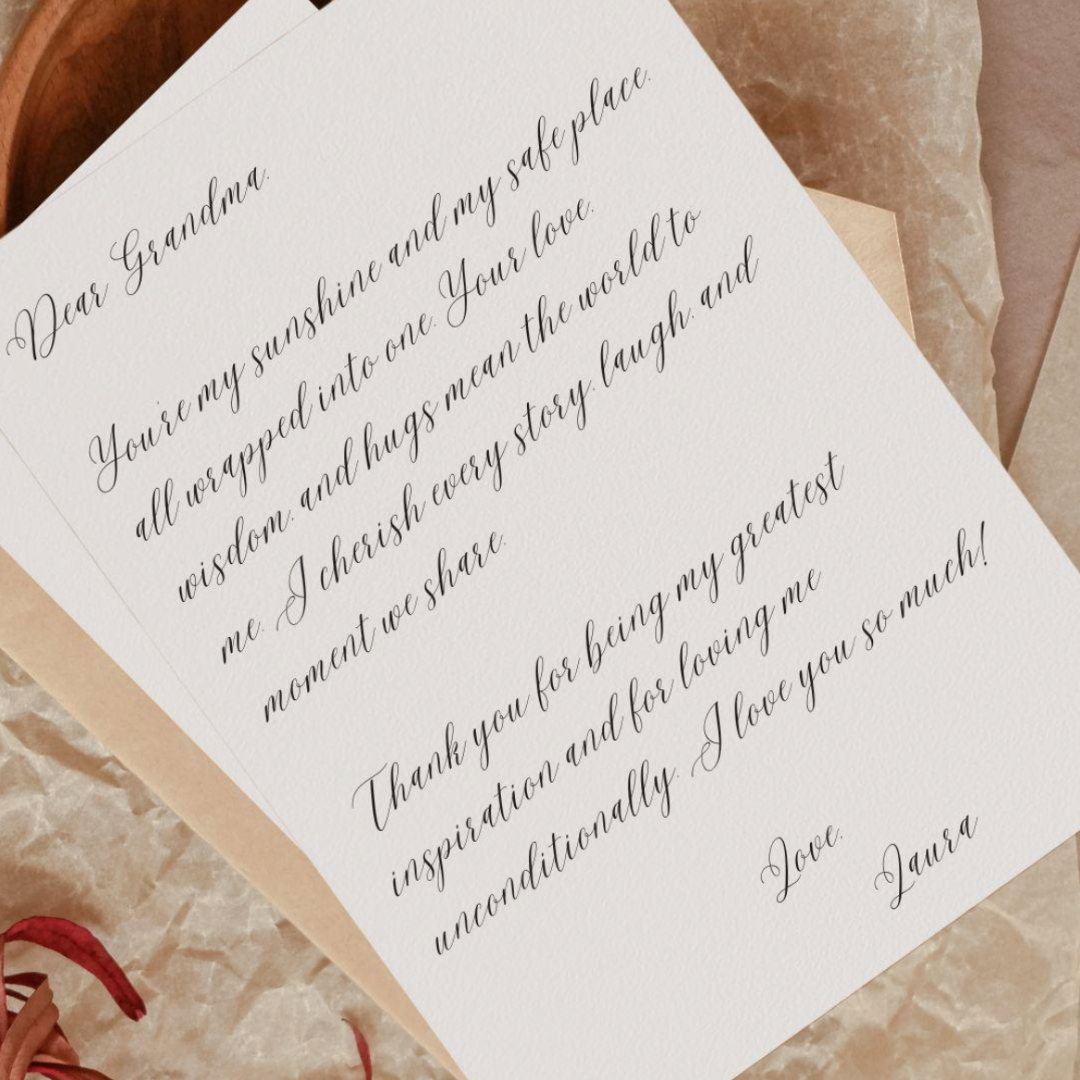 Dear Grandma,
You're my sunshine and my safe place,
all wrapped into one. Your love,
wisdom, and hugs mean the world to
me. I cherish every story, laugh, and
moment we share.
Thank you for being my greatest
inspiration and for loving me
unconditionally. I love you so much!
Love,
Laura